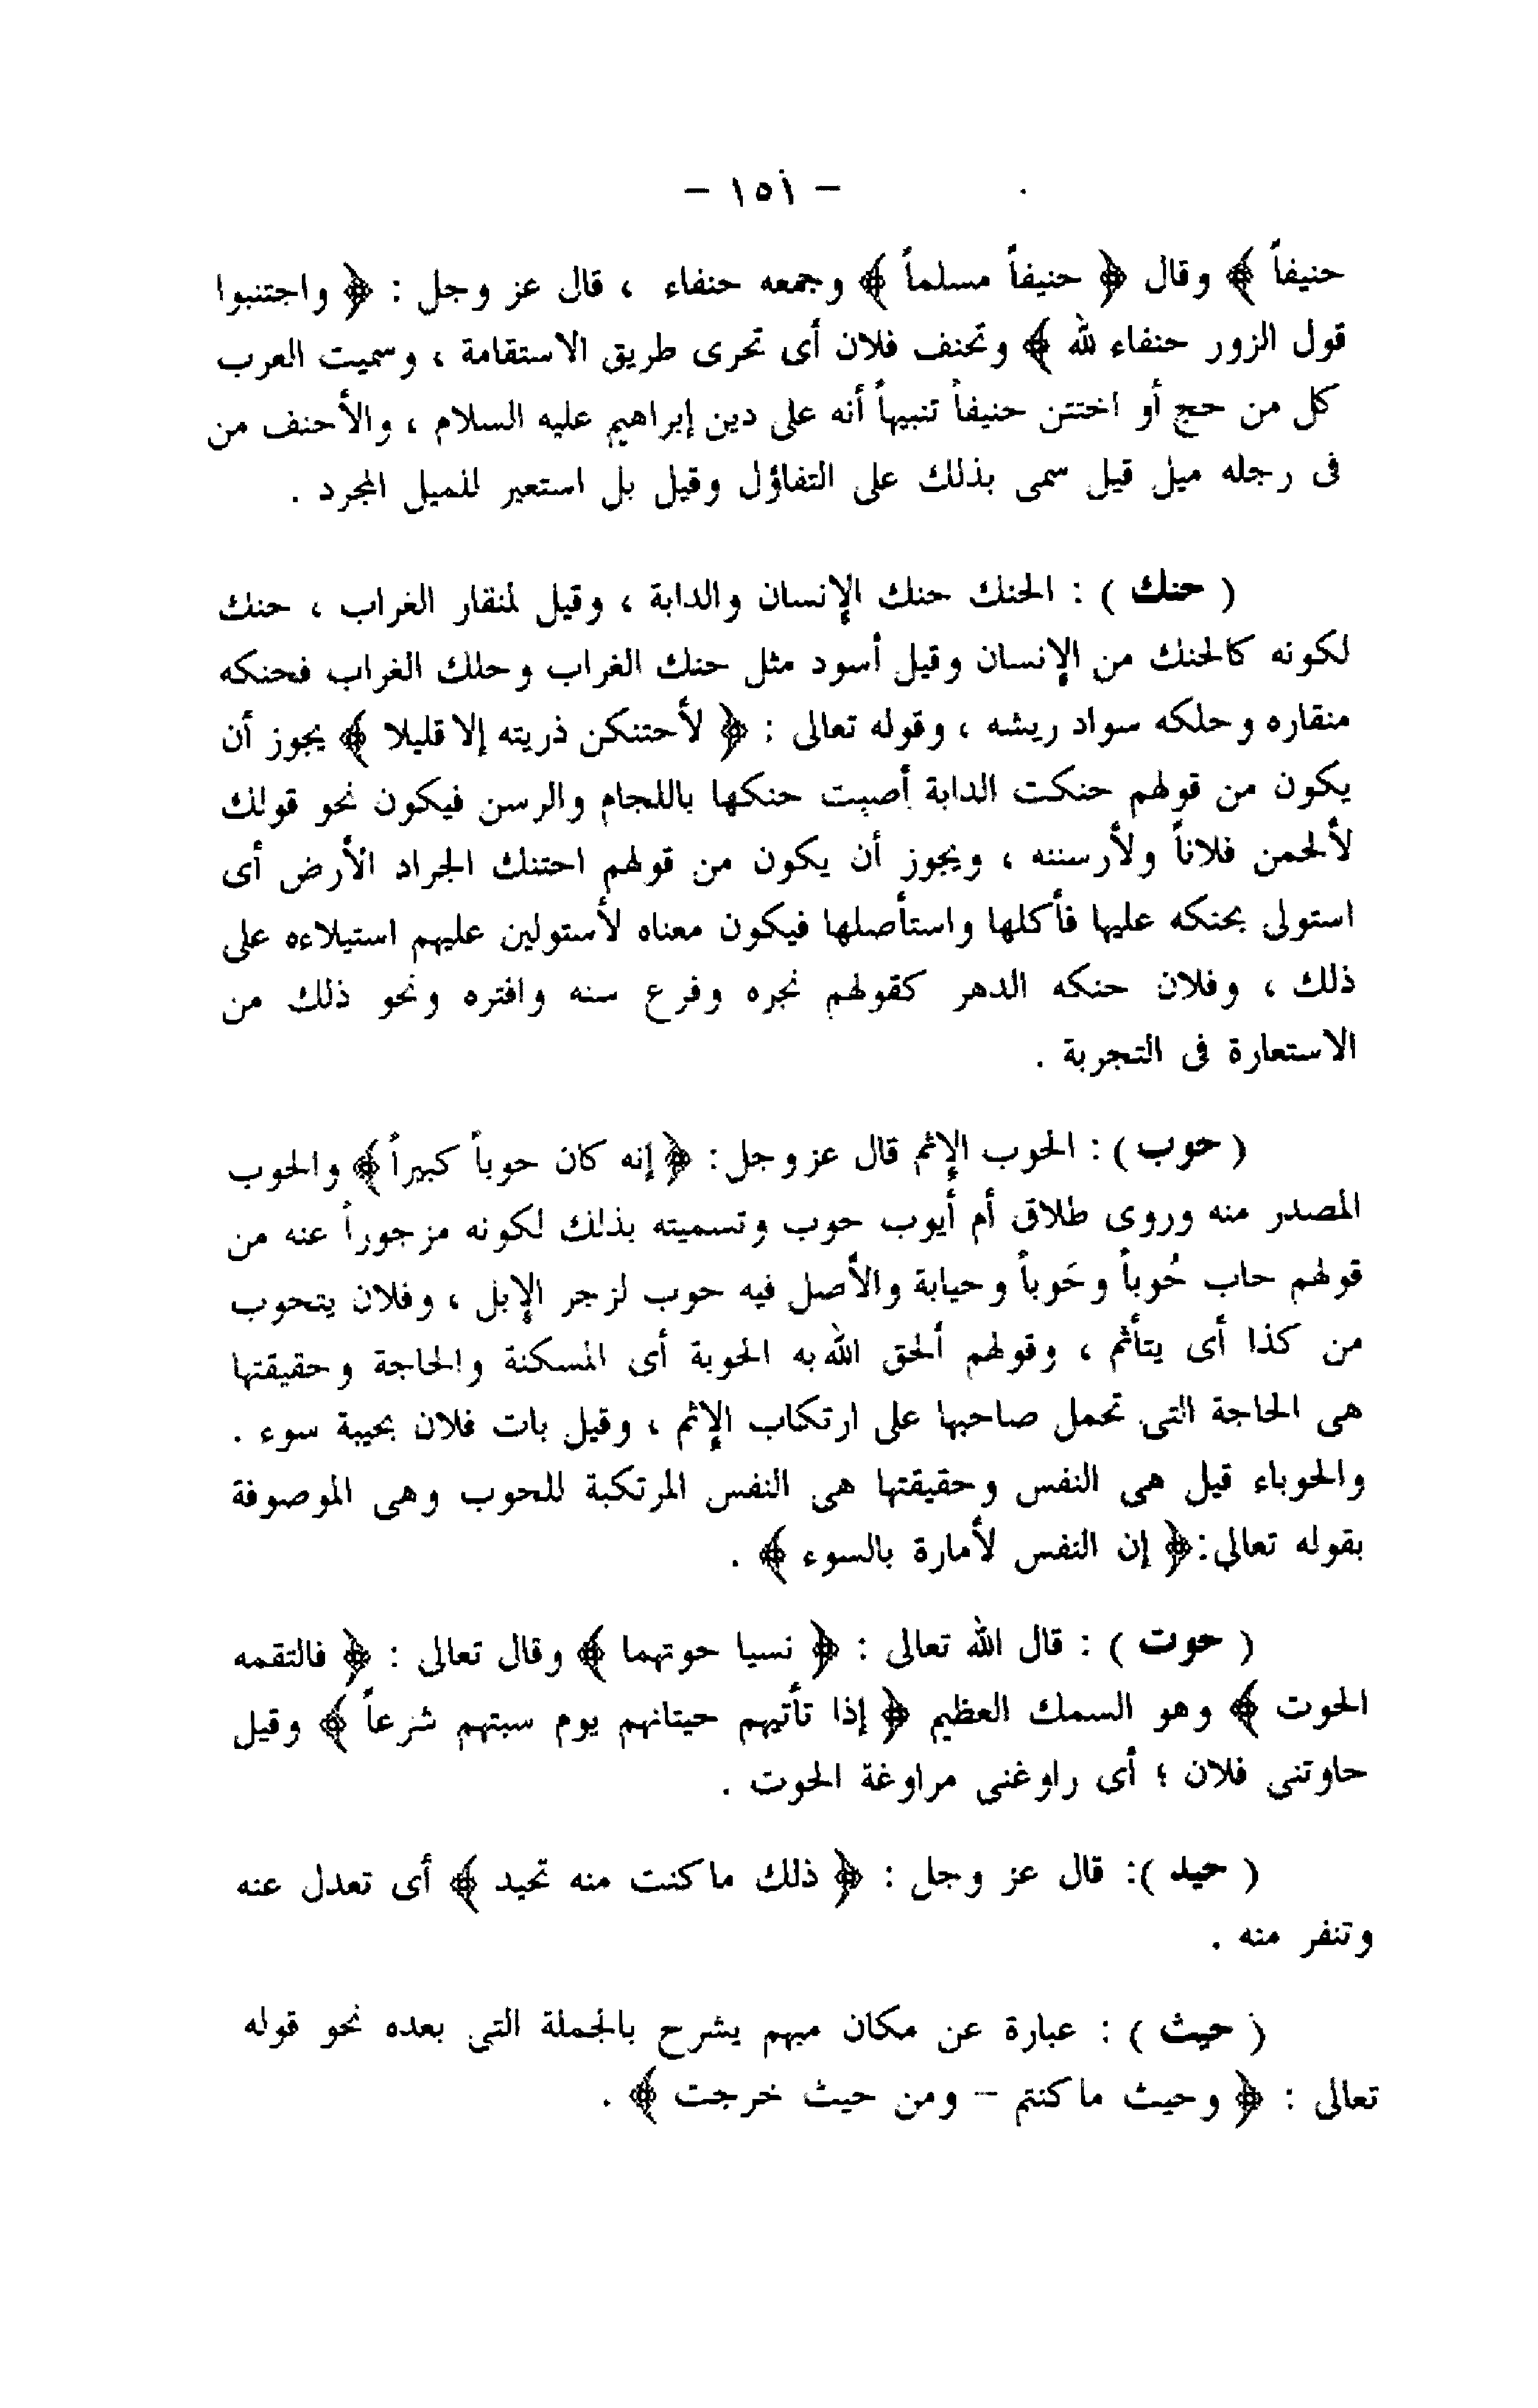 – ١٥١ –
حنيفاً ﴾ وقال ﴿ حنيفاً مسلماً ﴾ وجمعه حنفاء ، قال عز وجل : ﴿ واجتنبوا
قول الزور حنفاء لله ﴾ وتحنف فلان أى تحرى طريق الاستقامة ، وسميت العرب
كل من حج أو اختتن حنيفاً تنبيهاً أنه على دين إبراهيم عليه السلام ، والأحنف من
فى رجله ميل قيل سمى بذلك على التفاؤل وقيل بل استعير للميل المجرد .
( حنك ) : الحنك حنك الإنسان والدابة ، وقيل لمنقار الغراب ، حنك
لكونه كالحنك من الإنسان وقيل أسود مثل حنك الغراب وحلك الغراب فحنكه
منقاره وحلكه سواد ريشه ، وقوله تعالى : ﴿ لأحتنكن ذريته إلا قليلا ﴾ يجوز أن
يكون من قولهم حنكت الدابة أصبت حنكها باللجام والرسن فيكون نحو قولك
لألجمن فلاناً ولأرسننه ، ويجوز أن يكون من قولهم احتنك الجراد الأرض أى
استولى بحنكه عليها فأكلها واستأصلها فيكون معناه لأستولين عليهم استيلاءه على
ذلك ، وفلان حنكه الدهر كقولهم نجره وفرع سنه وافتره ونحو ذلك من
الاستعارة فى التجربة .
( حوب ) : الحوب الإثم قال عز وجل : ﴿ إنه كان حوباً كبيراً ﴾ والحوب
المصدر منه وروى طلاق أم أيوب حوب وتسميته بذلك لكونه مزجوراً عنه من
قولهم حاب حُوباً وحَوباً وحيابة والأصل فيه حوب لزجر الإبل ، وفلان يتحوب
من كذا أى يتأثم ، وقولهم ألحق الله به الحوبة أى المسكنة والحاجة وحقيقتها
هى الحاجة التى تحمل صاحبها على ارتكاب الإثم ، وقيل بات فلان بحيبة سوء .
والحوباء قيل هى النفس وحقيقتها هى النفس المرتكبة للحوب وهى الموصوفة
بقوله تعالى : ﴿ إن النفس لأمارة بالسوء ﴾ .
( حوت ) : قال الله تعالى : ﴿ نسيا حوتهما ﴾ وقال تعالى : ﴿ فالتقمه
الحوت ﴾ وهو السمك العظيم ﴿ إذا تأتيهم حيتانهم يوم سبتهم شرعاً ﴾ وقيل
حاوتنى فلان ؛ أى راوغنى مراوغة الحوت .
( حيد ): قال عز وجل : ﴿ ذلك ما كنت منه تحيد ﴾ أى تعدل عنه
وتنفر منه .
( حيث ) : عبارة عن مكان مبهم يشرح بالجملة التى بعده نحو قوله
تعالى : ﴿ وحيث ما كنتم – ومن حيث خرجت ﴾ .